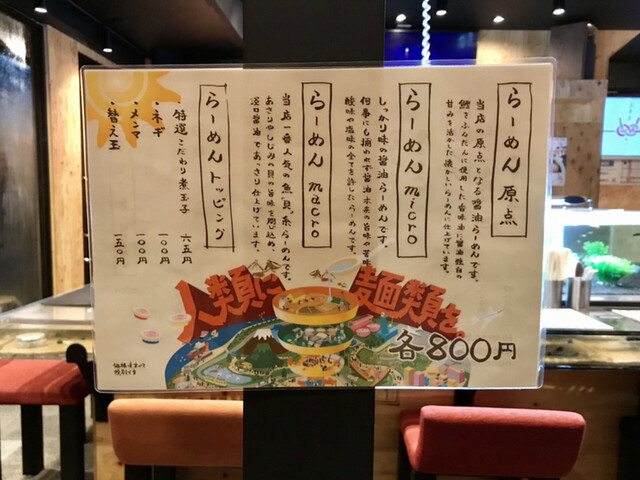 らーめん 原点
当店の原点となる醤油らーめんです。
鰹をふんだんに使用した香味油に醤油独自の
甘みを活かした懐かしいらーめんに仕上げています。
らーめん micro
しっかり味の醤油らーめんです。
何事にも捕われず醤油本来の旨味や苦味
酸味や塩味の全てを許したらーめんです。
らーめん macro
当店一番人気の魚貝系らーめんです。
あさりやしじみの貝の旨味を閉じ込め、
淡口醤油であっさり仕上げています。
らーめんトッピング
・特選こだわり煮玉子 六五円
・ネギ 一〇〇円
・メンマ 一〇〇円
・替え玉 一五〇円
人類に麺類を。
各800円
価格はすべて
税別です